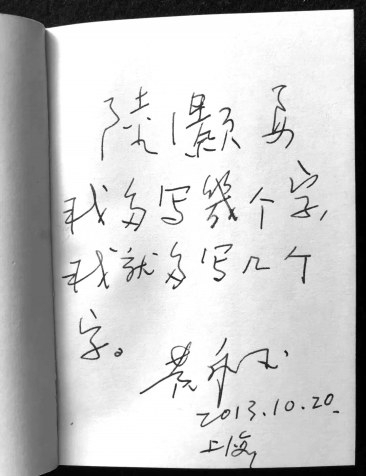 陆灏要
我多写幾个字，
我就多写几个
字。
黄永玉
2013.10.20.
上海